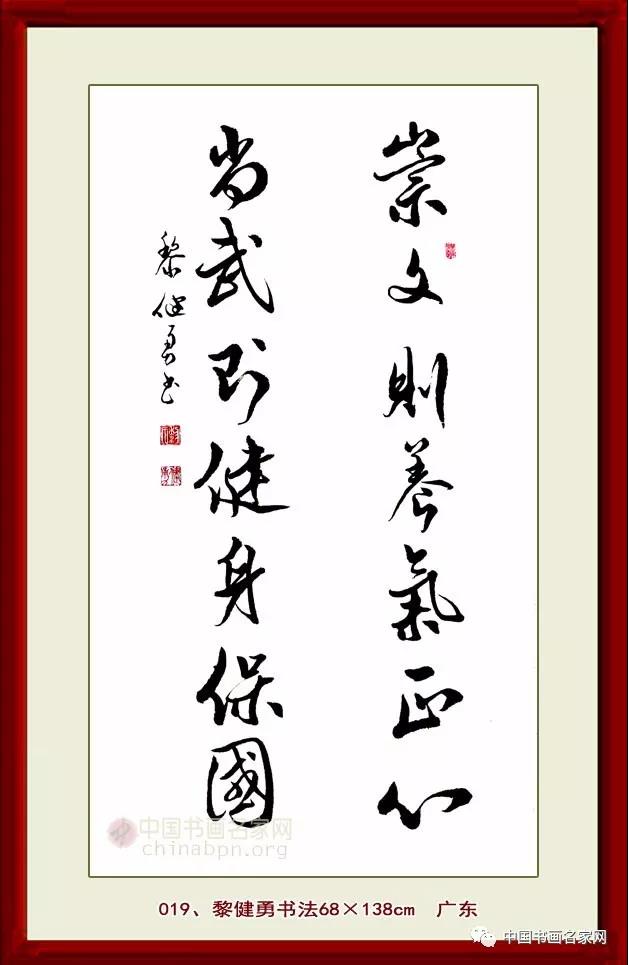 崇文則養氣正心
尚武即健身保國
黎健勇书
中国书画名家网
chinabpn.org
019、黎健勇书法68×138cm 广东
中国书画名家网